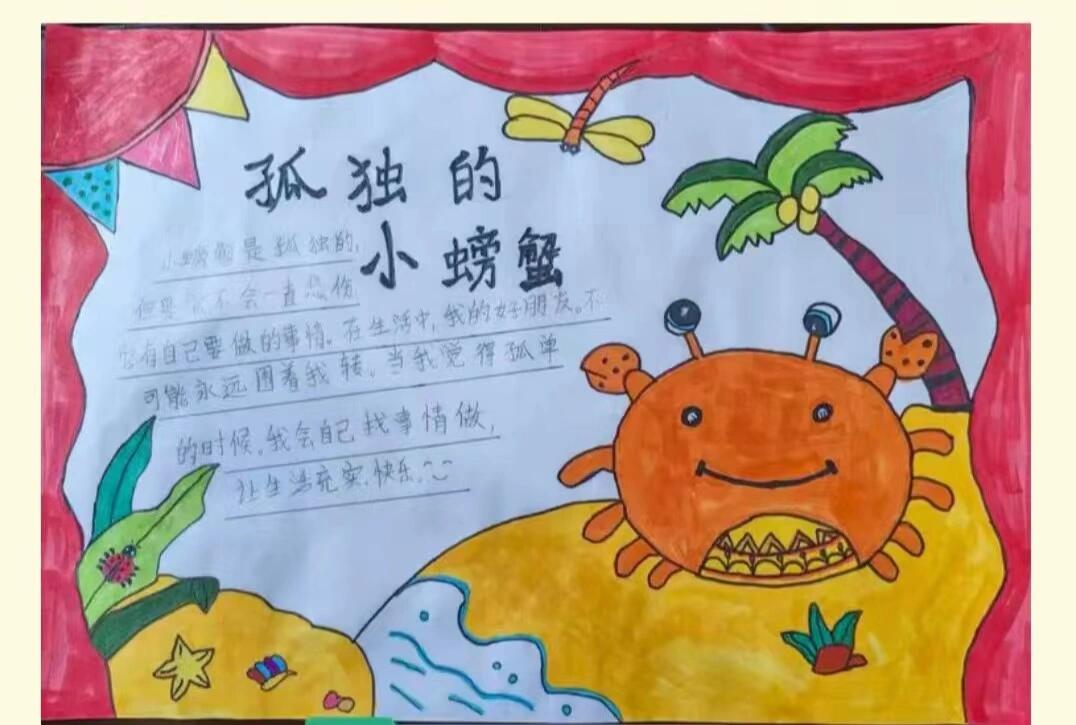 孤独的
小螃蟹
小螃蟹是孤独的,
但是 不会一直悲伤
它有自己要做的事情。在生活中,我的好朋友。不
可能永远围着我转。当我觉得孤单
的时候。我会自己找事情做,
让生活充实、快乐。